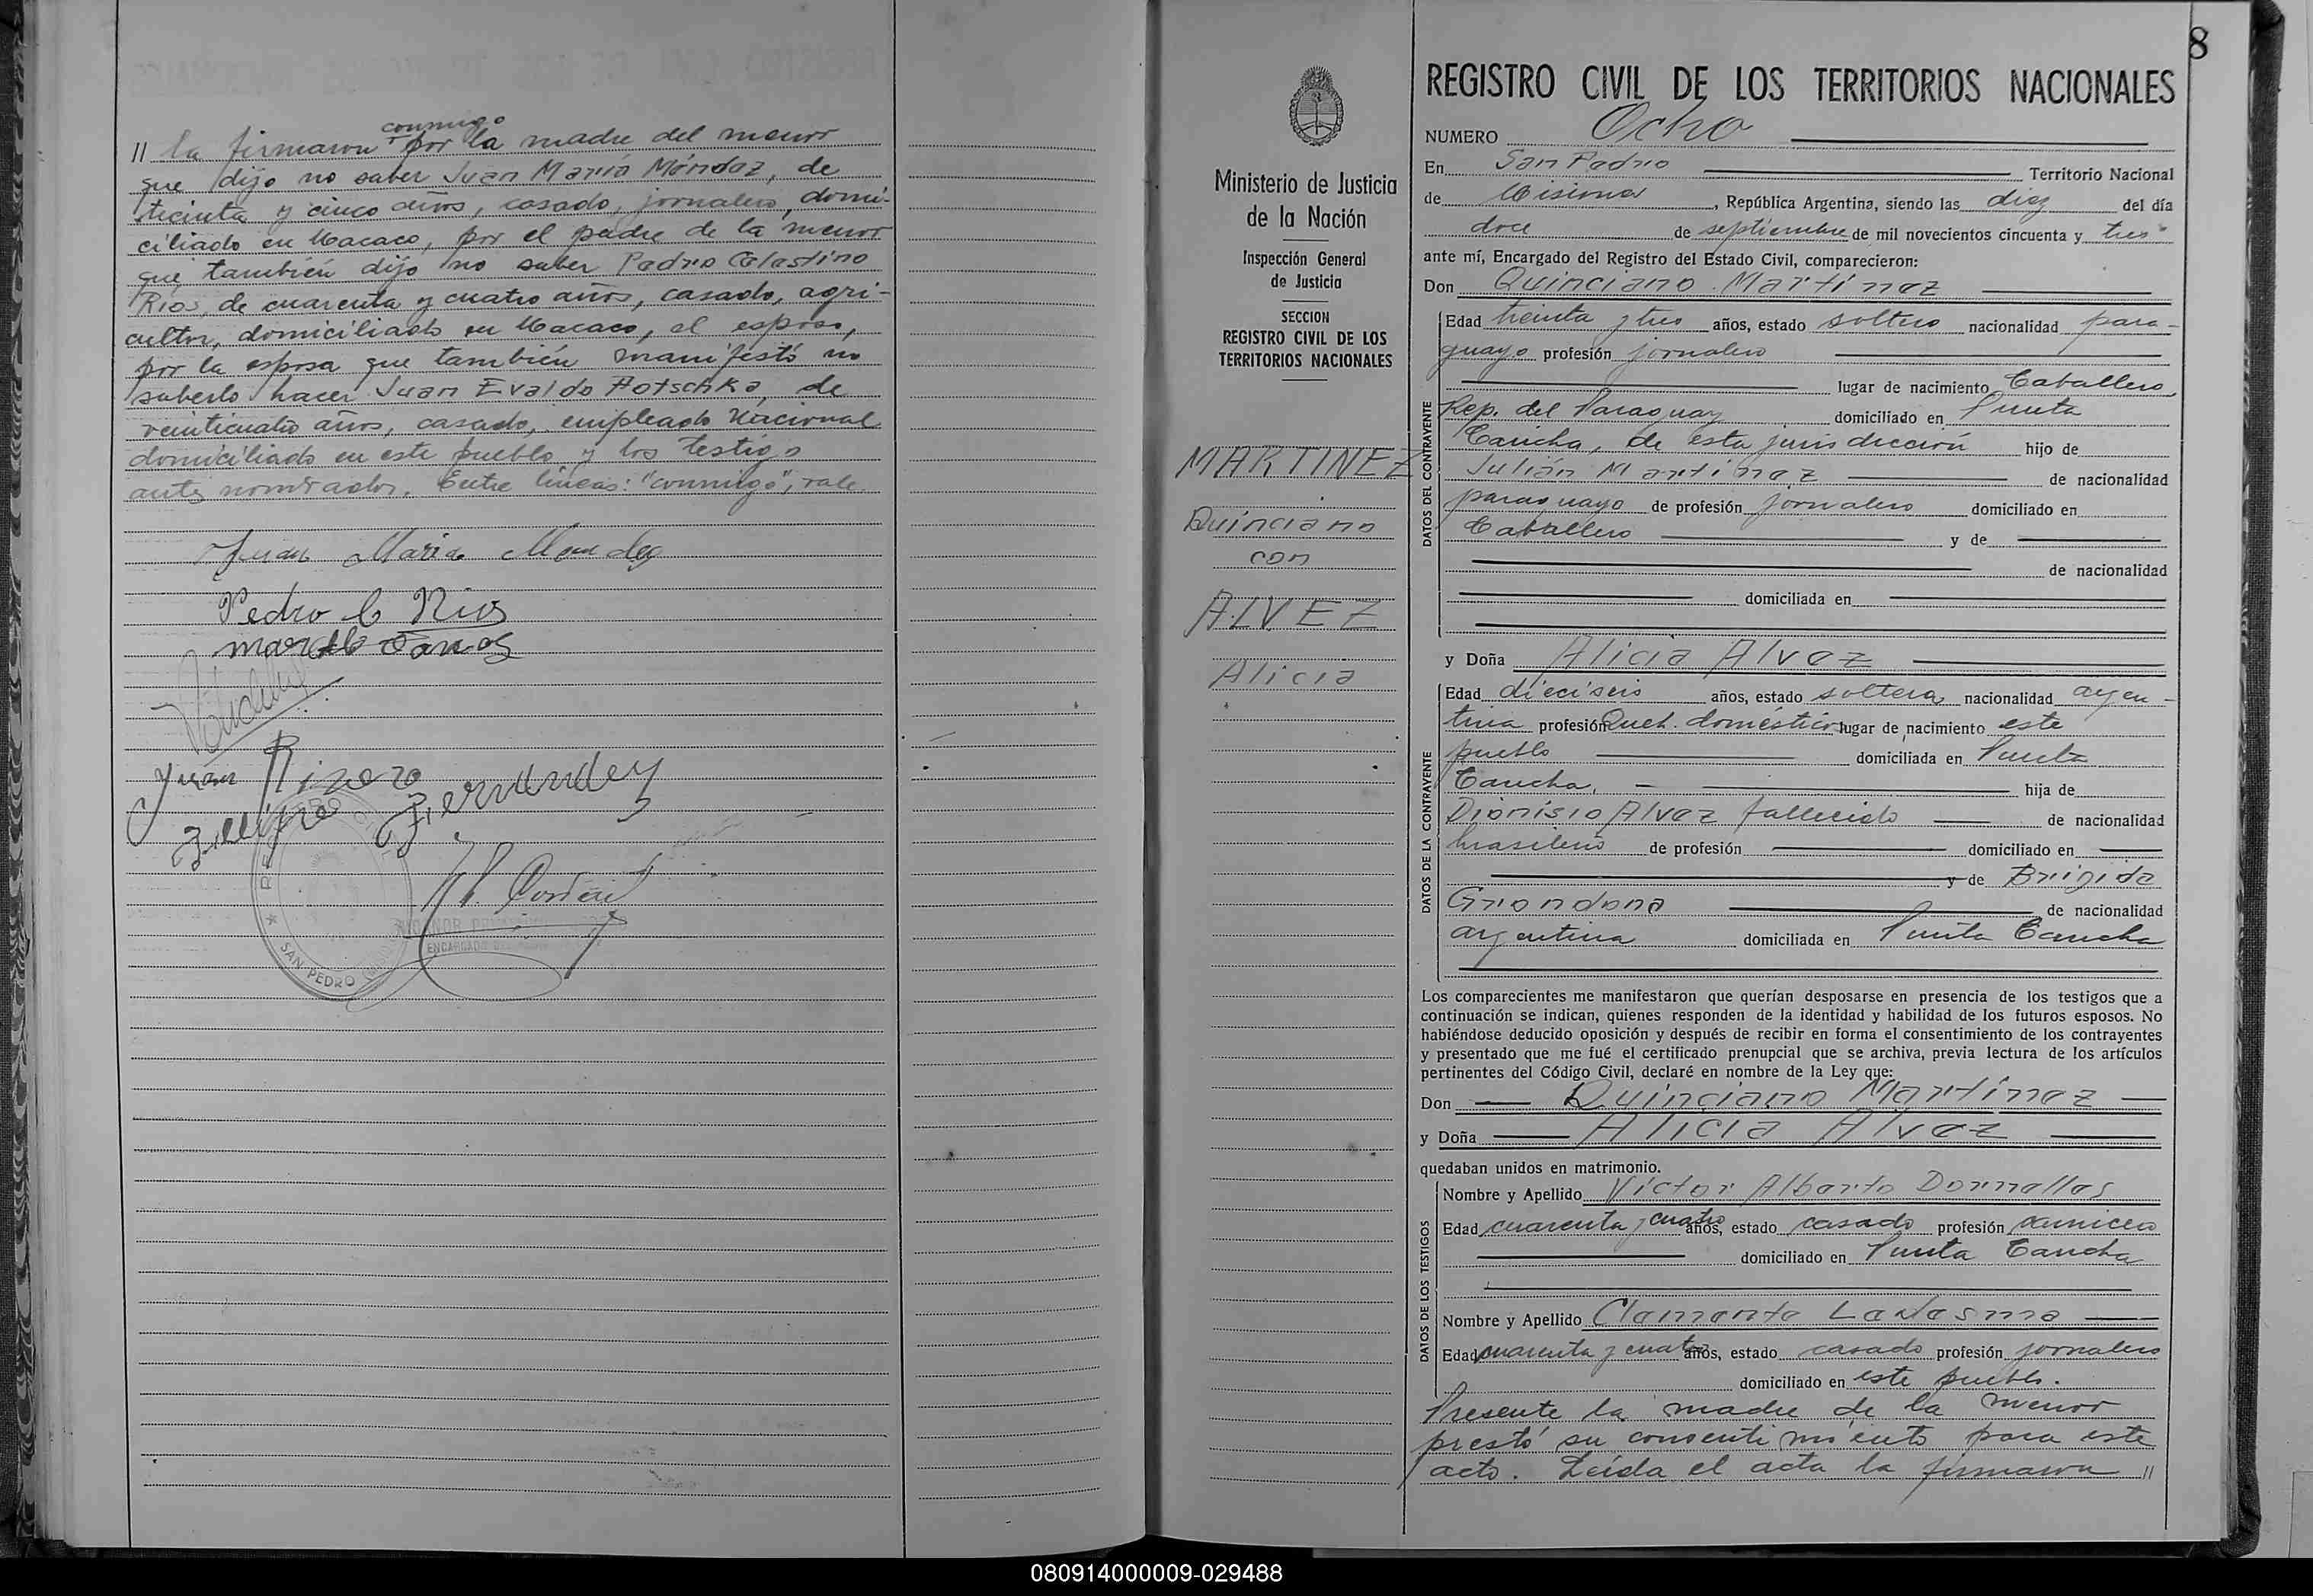 conmigo
// la firmaron por la madre del menor
que dijo no saber Juan María Méndez, de
treinta y cinco años, casado, jornalero, domi-
ciliado en Macaco, por el padre de la menor
que también dijo no saber Pedro Celestino
Rios, de cuarenta y cuatro años, casado, agri-
cultor, domiciliado en Macaco, el esposo,
por la esposa que también manifestó no
saberlo hacer Juan Evaldo Hotschka, de
veinticuatro años, casado, empleado Nacional
domiciliado en este pueblo y los testigos
antes nombrados. Entre líneas: "conmigo", vale.
Juan Maria Mendez
Pedro C Rios
Juan
Fernandez
SAN PEDRO
8
Ministerio de Justicia
de la Nación
Inspección General
de Justicia
SECCION
REGISTRO CIVIL DE LOS
TERRITORIOS NACIONALES
MARTINEZ
Quinciano
con
ALVEZ
Alicia
REGISTRO CIVIL DE LOS TERRITORIOS NACIONALES
NUMERO Ocho
En San Pedro Territorio Nacional
de Misiones, República Argentina, siendo las diez del día
doce de septiembre de mil novecientos cincuenta y tres
ante mí, Encargado del Registro del Estado Civil, comparecieron:
Don Quinciano Martínez
DATOS DEL CONTRAYENTE
Edad treinta y tres años, estado soltero nacionalidad para-
guayo profesión jornalero
lugar de nacimiento Caballero
Rep. del Paraguay domiciliado en Punta
Cancha, de esta jurisdicción hijo de
Julián Martínez de nacionalidad
paraguayo de profesión jornalero domiciliado en
Caballero y de
de nacionalidad
domiciliada en
y Doña Alicia Alvez
DATOS DE LA CONTRAYENTE
Edad dieciseis años, estado soltera nacionalidad argen-
tina profesión Queh. domésticos lugar de nacimiento este
pueblo domiciliada en Punta
Cancha, hija de
Dionisio Alvez fallecido de nacionalidad
brasileño de profesión domiciliado en
y de Brigida
Grondona de nacionalidad
argentina domiciliada en Punta Cancha
Los comparecientes me manifestaron que querían desposarse en presencia de los testigos que a
continuación se indican, quienes responden de la identidad y habilidad de los futuros esposos. No
habiéndose deducido oposición y después de recibir en forma el consentimiento de los contrayentes
y presentado que me fué el certificado prenupcial que se archiva, previa lectura de los artículos
pertinentes del Código Civil, declaré en nombre de la Ley que:
Don Quinciano Martínez
y Doña Alicia Alvez
quedaban unidos en matrimonio.
DATOS DE LOS TESTIGOS
Nombre y Apellido Víctor Alberto Dornelles
Edad cuarenta y cuatro años, estado casado profesión carnicero
domiciliado en Punta Cancha
Nombre y Apellido Clemente Ledesma
Edad cuarenta y cuatro años, estado casado profesión jornalero
domiciliado en este pueblo.
Presente la madre de la menor
prestó su consentimiento para este
acto. Leída el acta la firmaron //
080914000009-029488